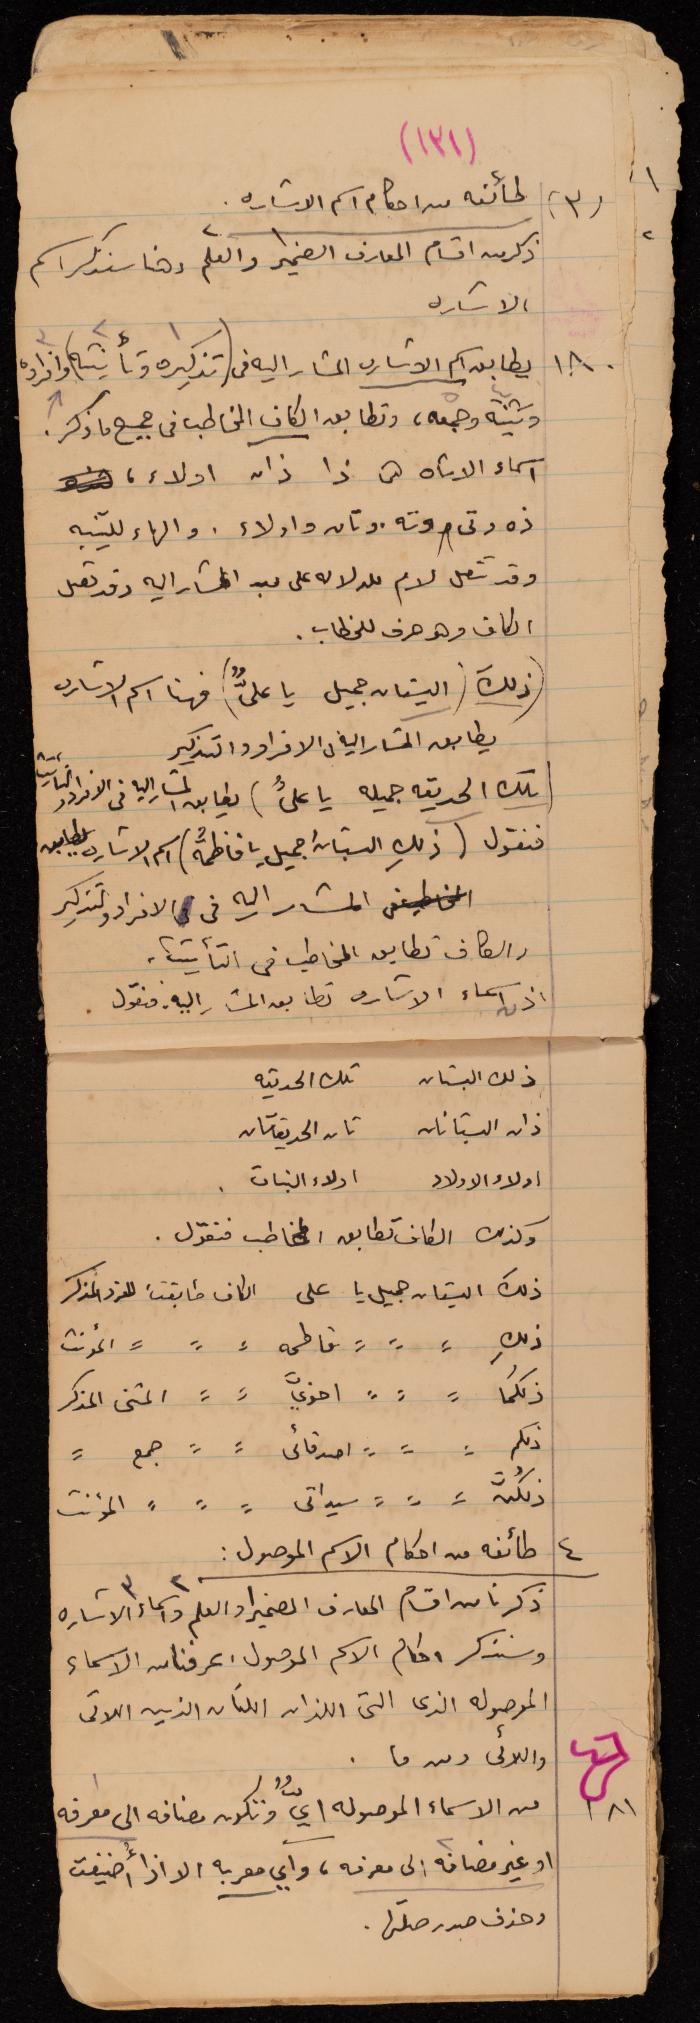 (١٣١)
(٣) طائفه من احكام اسم الاشاره .
ذكر من اقسام المعارف الضمير ١ والعلم ٢ وهنا سنذكر اسم
الاشاره
١٨٠ يطابق اسم الاشاره المشار اليه فى (تذكيره ١ وتأنيثه ٢) وافراده ٣
وتثنيته ٤ وجمعه ٥، وتطابق الكاف المخاطب فى جميع ما ذكر .
اسماء الاشاه هى ذا ذان اولاء ،
ذه وتى وته . وتان واولاء . والهاء للتنبيه
وقد تتصل لام للدلاله على بعد المشار اليه وقد تتصل
الكاف وهو حرف للخطاب .
(ذلكَ (البستان جميل يا علىُّ) فهنا اسم الاشاره
يطابق المشار اليه فى الافراد والتذكير
(تلك الحديقه جميله يا علىُّ) يطابق المشار اليه فى الافراد والتأنيث
فنقول (ذلكِ البستانُ جميل يا فاطمهُ) اسم الاشاره يطابق
المشار اليه فى الافراد والتذكير
والكاف تطابق المخاطب فى التأنيث .
اذن اسماء الاشاره تطابق المشار اليه . فنقول
ذلك البستان تلك الحديقه
ذان البستانان تان الحديقتان
اولاء الاولاد اولاء البنات .
وكذلك الكاف تطابق المخاطب فنقول .
ذلكَ البستان جميل يا على الكاف طابقت المفرد المذكر
ذلكِ = = = فاطمه = = = المؤنث
ذلكُما = = = اخوىَّ = = المثنى المذكر
ذلكم = = = اصدقائى = = جمع =
ذلكُنَّ = = = سيداتى = = = المؤنث
٤ طائفه من احكام الاسم الموصول :
ذكرنا من اقسام المعارف الضمير ١ والعلم ٢ واسماء الاشاره ٣
وسنذكر احكام الاسم الموصول ، عرفنا من الاسماء
الموصوله الذى التى اللذان اللتان الذين اللاتى
واللائى ومن ما .
١٨١ من الاسماء الموصوله اىٌّ وتكون مضافه الى معرفه ١
او غير مضافه ٢ الى معرفه ، وأى معربه الا اذا أُضيفت
وحذف صدر صلتها .